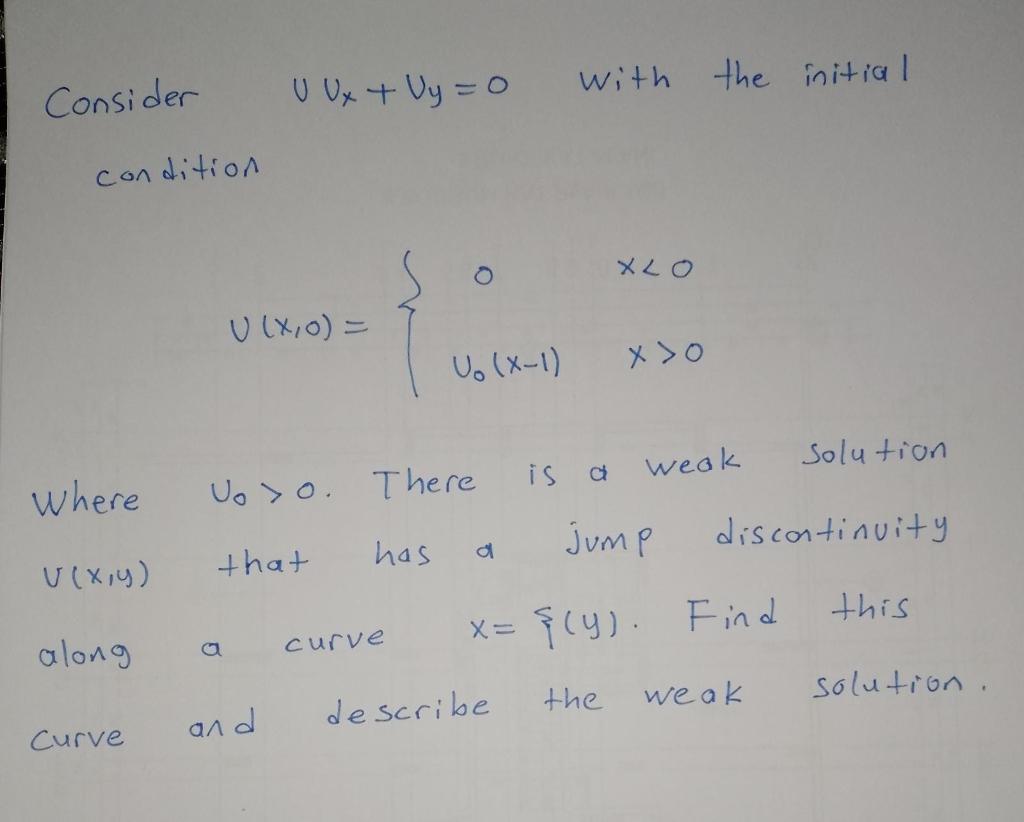 Consider U Ux + Uy = 0 with the initial
condition
U(x,0) = { 0 x<0
U₀(x-1) x>0
Where U₀>0. There is a weak solution
U(x,y) that has a jump discontinuity
along a curve x= ξ(y). Find this
curve and describe the weak solution.